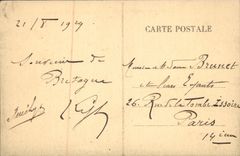 21/8 1929
CARTE POSTALE
Souvenir de
Bretagne
Monsieur et Madame Brunet
et leurs Enfants
26 Rue de la Tombe Issoire
Paris
14ième